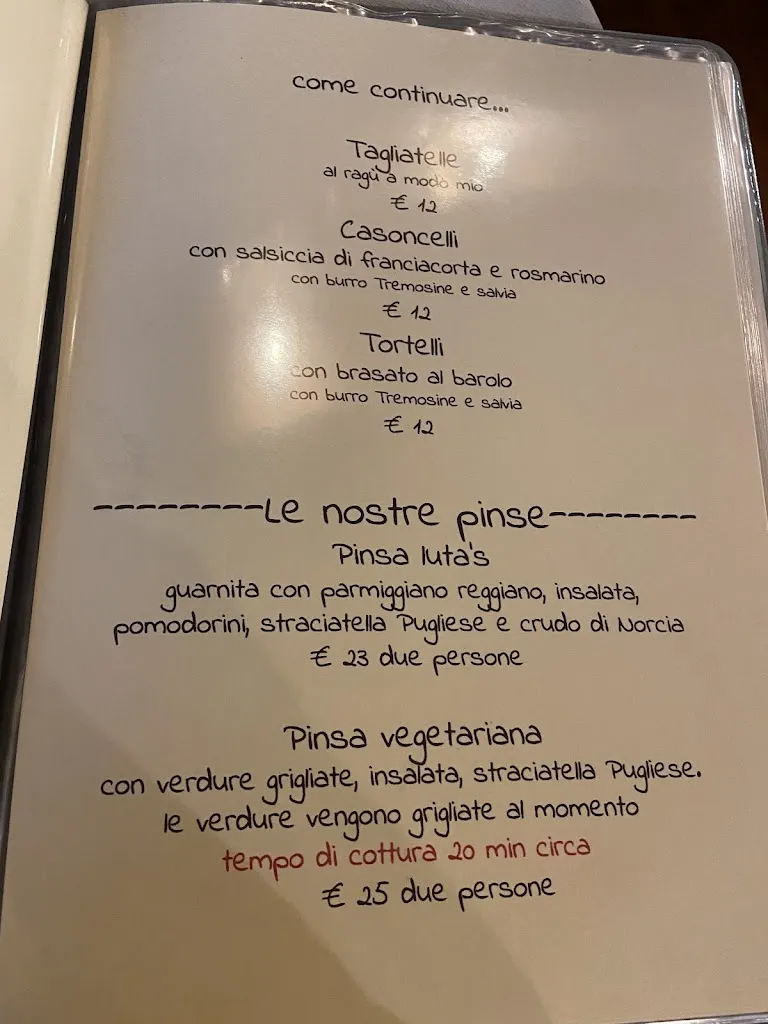 come continuare...
Tagliatelle
al ragù a modo mio
€ 12
Casoncelli
con salsiccia di franciacorta e rosmarino
con burro Tremosine e salvia
€ 12
Tortelli
con brasato al barolo
con burro Tremosine e salvia
€ 12
--------Le nostre pinse--------
Pinsa Iuta's
guarnita con parmiggiano reggiano, insalata,
pomodorini, straciatella Pugliese e crudo di Norcia
€ 23 due persone
Pinsa vegetariana
con verdure grigliate, insalata, straciatella Pugliese.
le verdure vengono grigliate al momento
tempo di cottura 20 min circa
€ 25 due persone